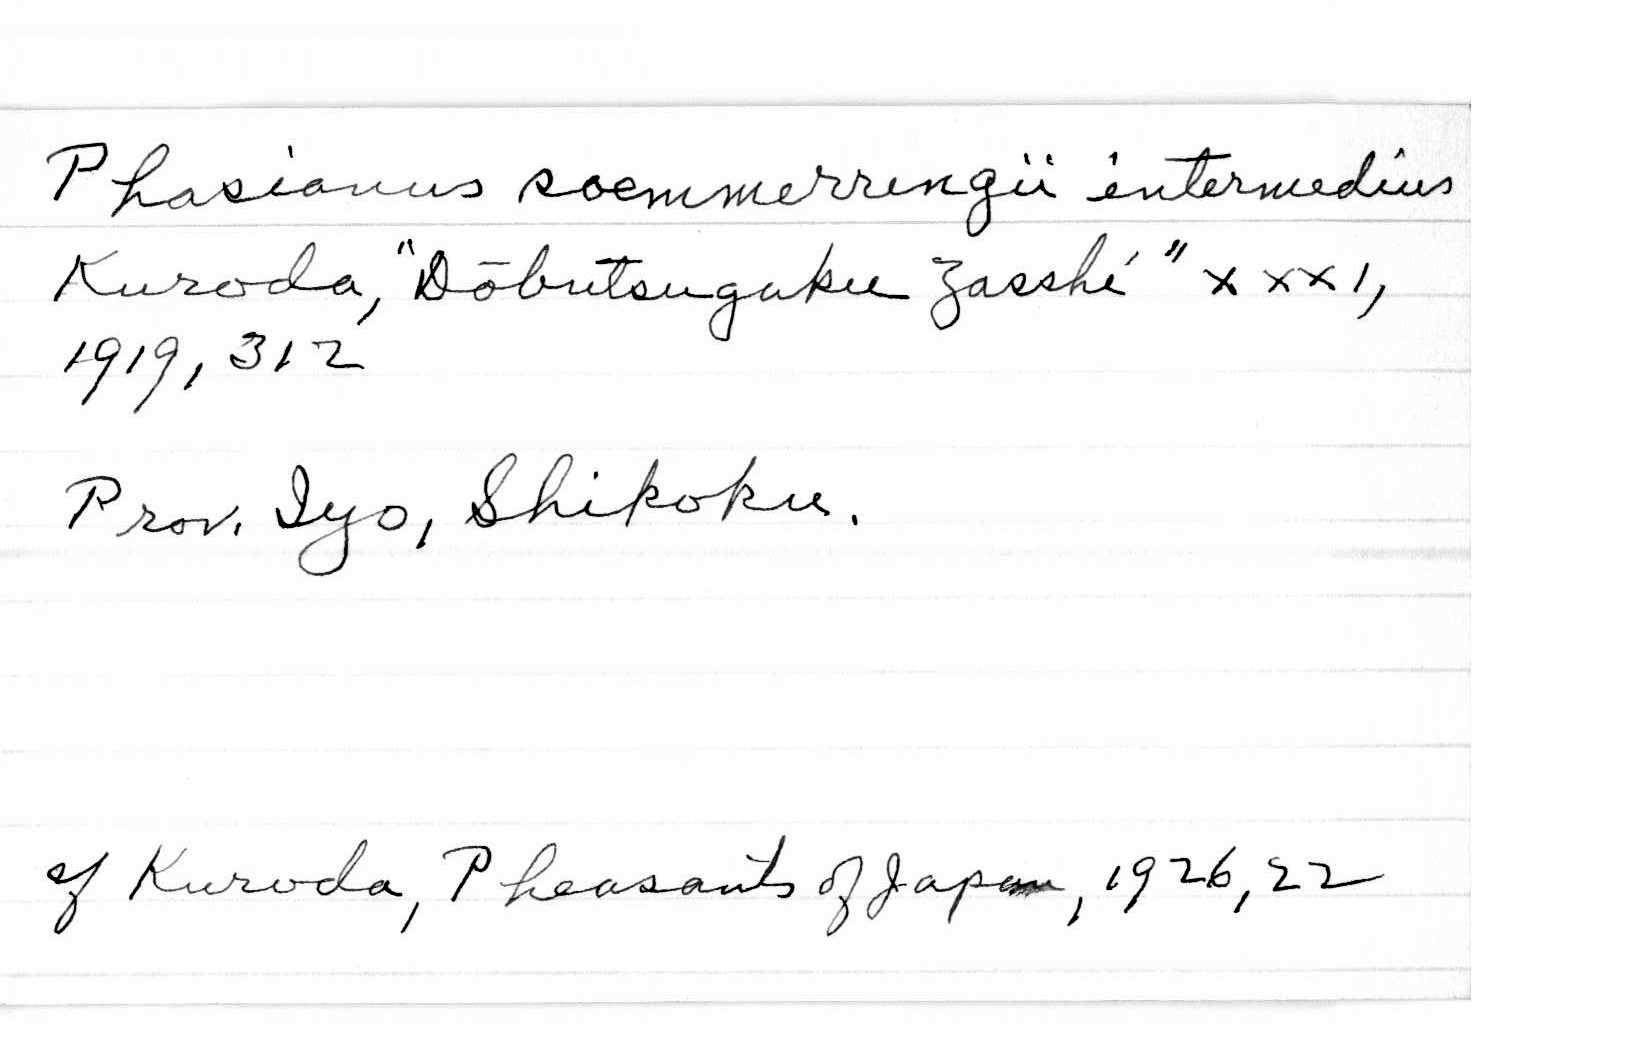 Phasianus soemmerrengii intermedius
Kuroda, "Dōbutsugaku Zasshi" xxx1,
1919, 312
Prov. Iyo, Shikoku.
cf Kuroda, Pheasants of Japan, 1926, 22